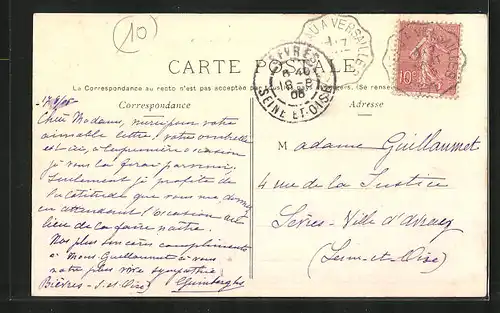 10
AU A VERSAILLES
BIÈVRES
6 40
18 - 8
06
SEINE-ET-OISE
10c
CARTE POSTALE
La Correspondance au recto n'est pas acceptée par
Correspondance
Adresse
Chère Madame, merci pour votre
aimable lettre, votre ombrelle
est ici, à la première occasion
je vous la ferai parvenir.
Seulement je profite de
que vous me donnez
en attendant l'occasion au
lieu de la faire naître.
Nos plus sincères compliments
à Mons. Guillaumet à vous
notre plus vive sympathie
Bièvres - S.-et-Oise)
Madame Guillaumet
4 rue de la Justice
Sèvres - Ville d'Avray
(Seine-et-Oise)